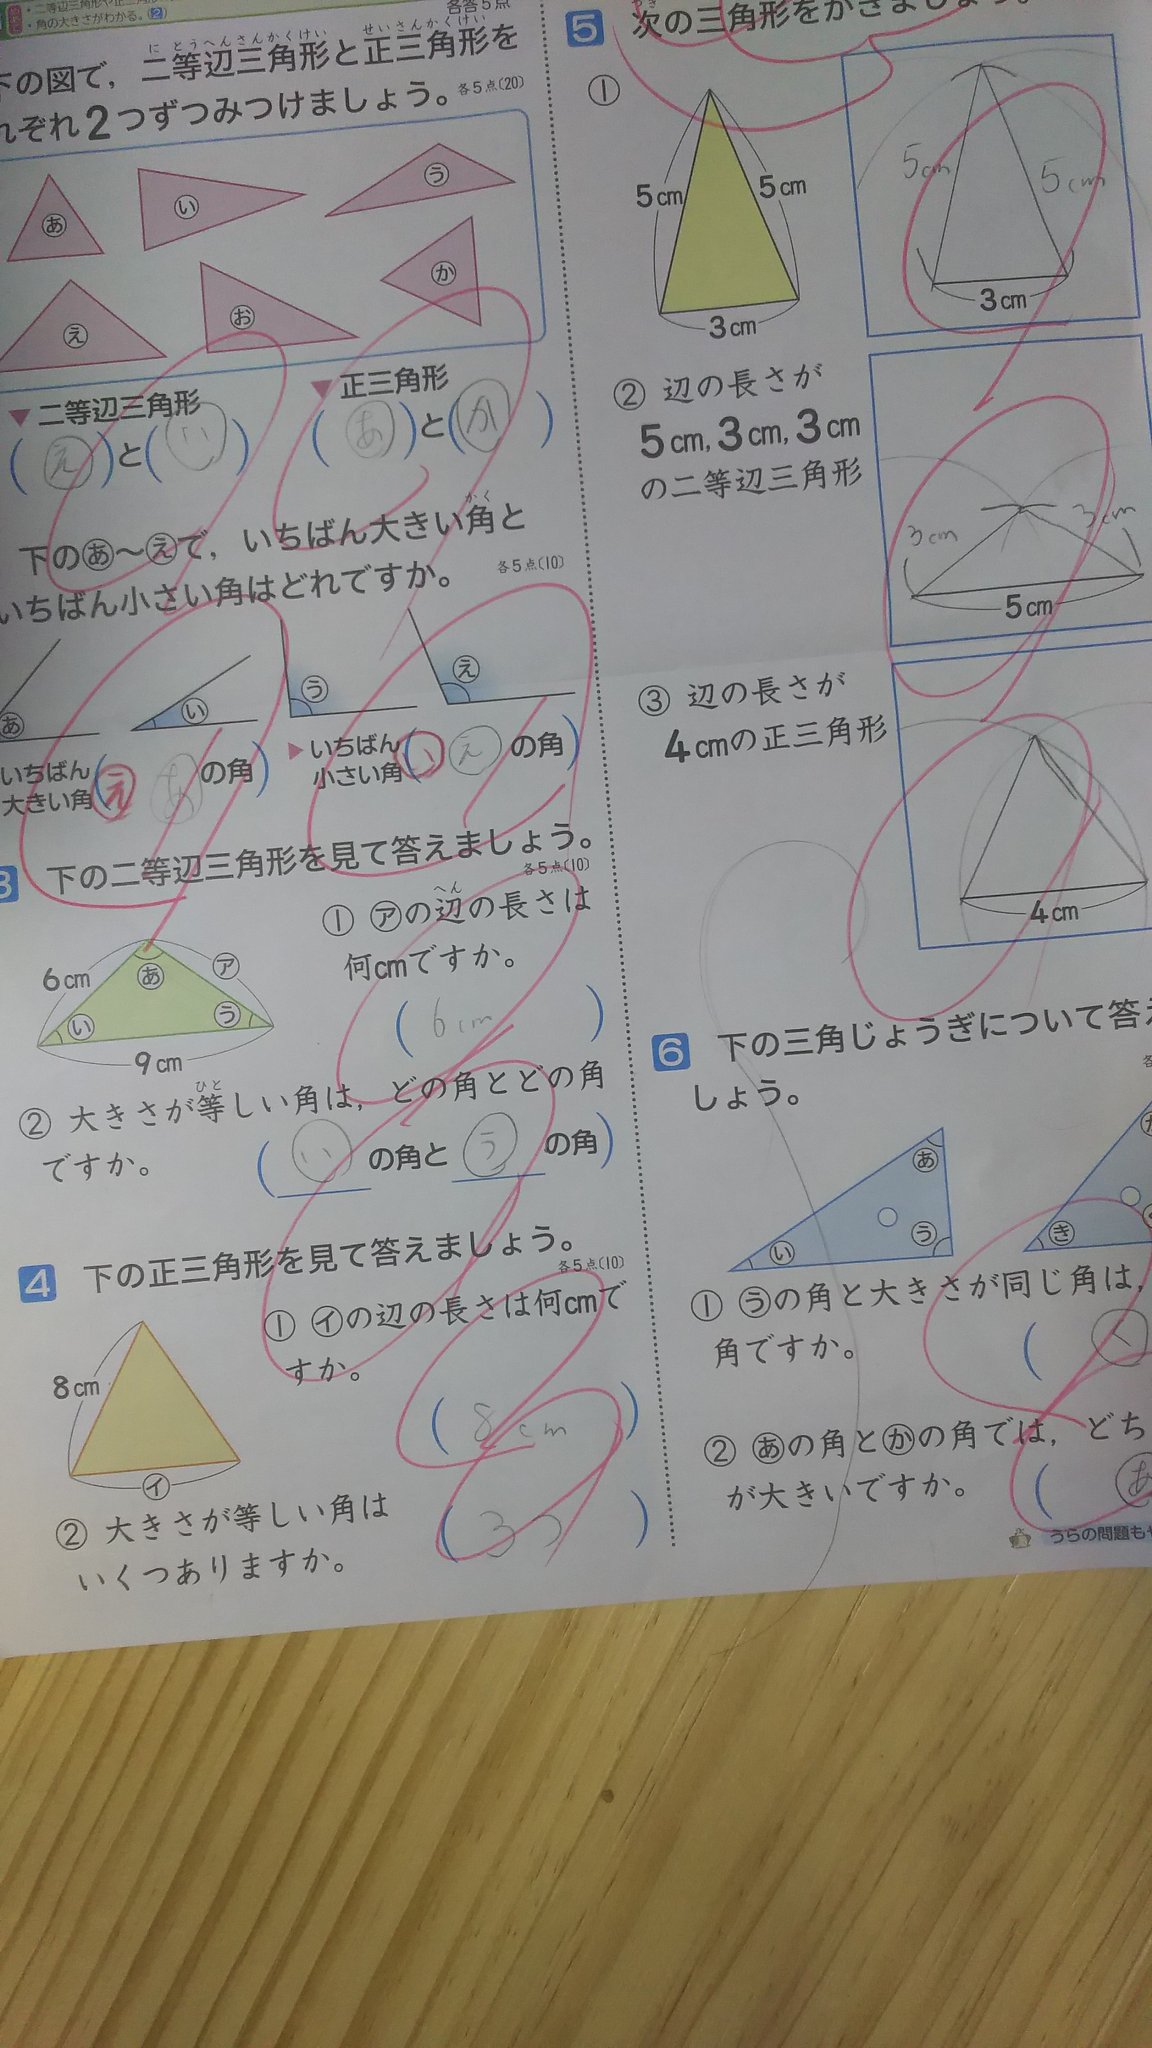 ・角の大きさがわかる。(2)
各答5点
に とうへんさんかくけい せいさんかくけい
下の図で，二等辺三角形と正三角形を
れぞれ2つずつみつけましょう。各5点(20)
あ い う
え お か
▼二等辺三角形
(え)と(い)
▼正三角形
(あ)と(か)
かく
下のあ～えで，いちばん大きい角と
いちばん小さい角はどれですか。 各5点(10)
あ い う え
いちばん大きい角(え あ の角)
▶いちばん小さい角(い え の角)
3 下の二等辺三角形を見て答えましょう。
各5点(10)
6cm あ ア
い う
9cm
へん
① アの辺の長さは
何cmですか。
(6cm)
ひと
② 大きさが等しい角は，どの角とどの角
ですか。 (い の角と う の角)
4 下の正三角形を見て答えましょう。
各5点(10)
8cm
イ
① イの辺の長さは何cmで
すか。
(8cm)
② 大きさが等しい角は
いくつありますか。
(3つ)
5 次の三角形をかきましょう。
①
5cm 5cm
3cm
5cm 5cm
3cm
② 辺の長さが
5cm, 3cm, 3cm
の二等辺三角形
3cm 3cm
5cm
③ 辺の長さが
4cmの正三角形
4cm
6 下の三角じょうぎについて答え
しょう。
あ
い う
き
① うの角と大きさが同じ角は，
角ですか。
(く
② あの角とかの角では，どち
が大きいですか。
(あ
うらの問題も